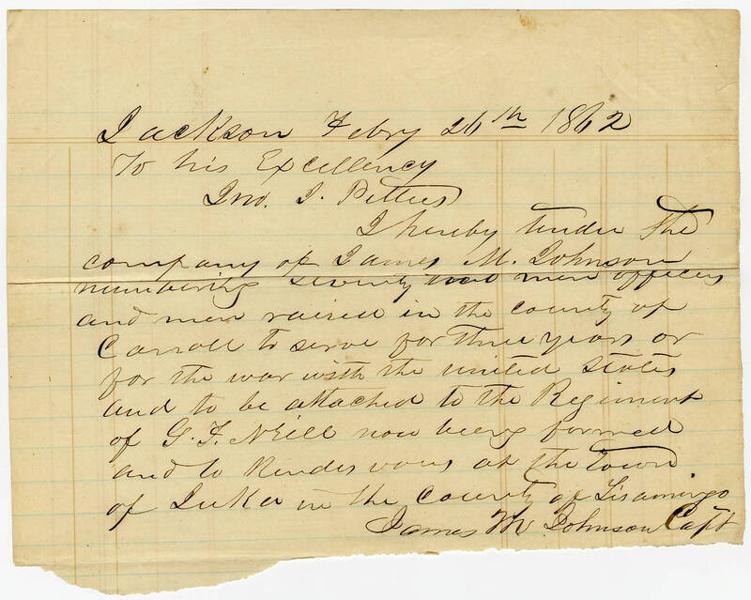 Jackson Febry 26th 1862
To his Excellency
Jno. J. Pettus
I hereby tender the
company of James M. Johnson
numbering seventy two men officers
and men raised in the county of
Carroll to serve for three years or
for the war with the united states
and to be attached to the Regiment
of G. F. Neill now being formed
and to Rendes vous at the town
of Iuka in the county of Tisamingo
James M. Johnson Capt